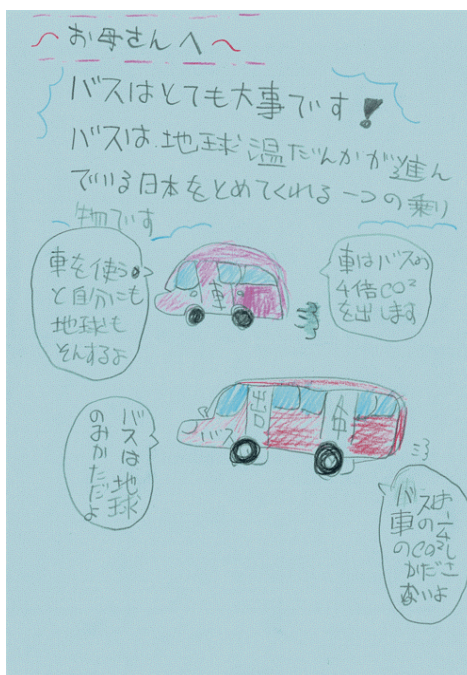 お母さんへ
バスはとても大事です!
バスは地球温だんかが進ん
でいる日本をとめてくれる一つの乗り
物です
車を使う
と自分にも
地球も
そんするよ
車
車はバスの
4倍CO²
を出します
バス
出
バスは地球
のみかただよ
バスは
車の1/4
のCO²し
かださ
ないよ